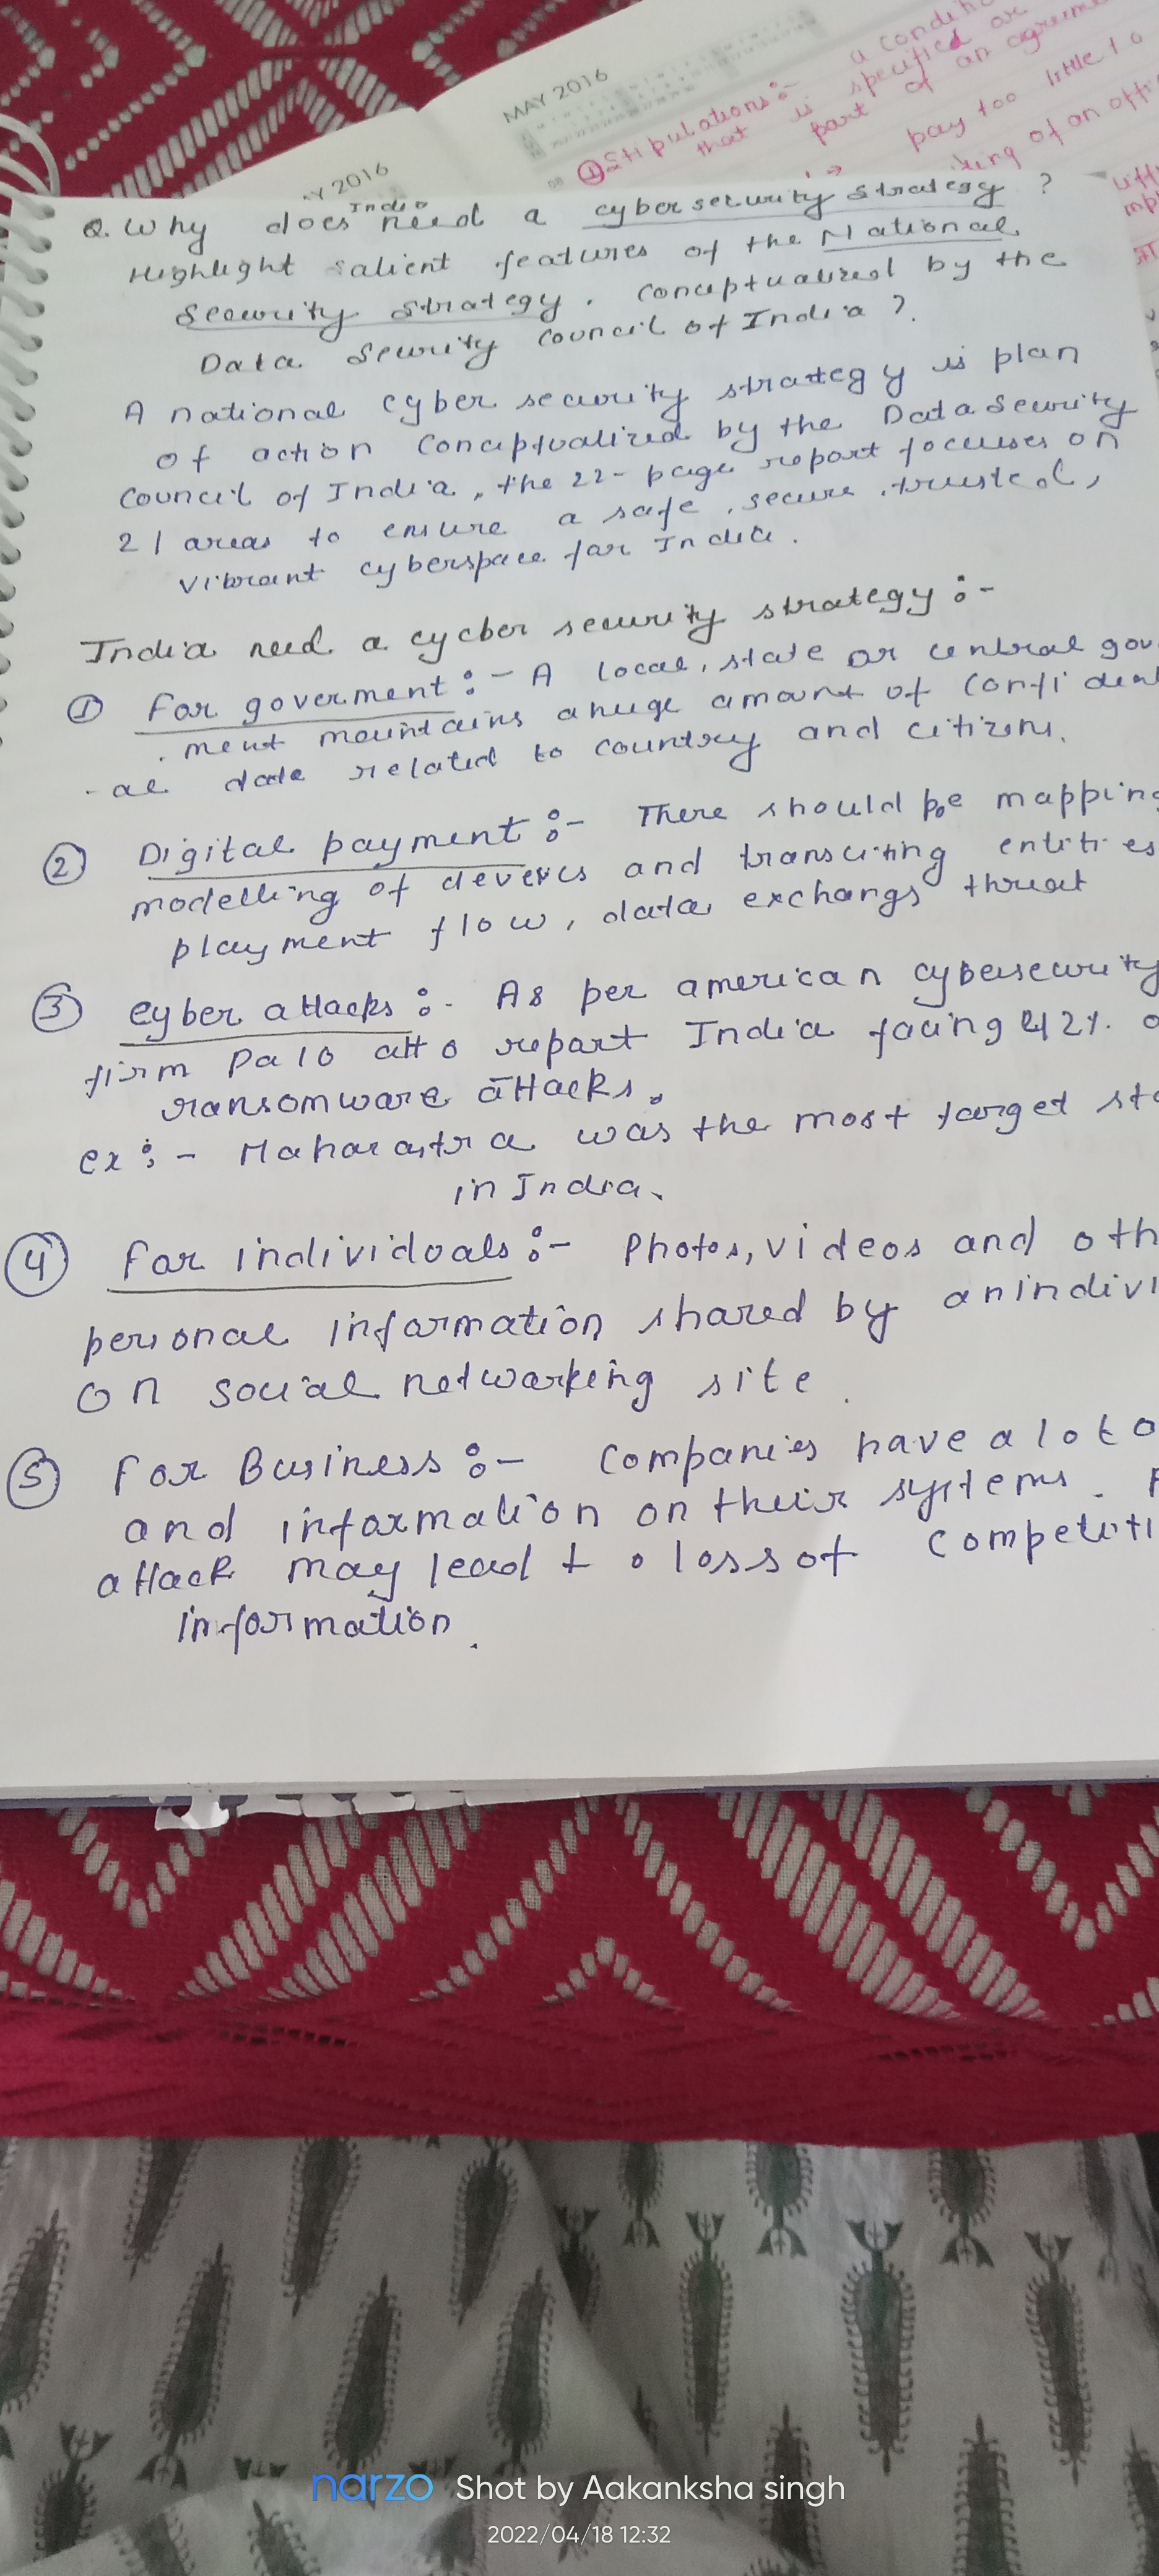 MAY 2016
a condit
① Stipulations:- specified or
that is part of an agreeme
pay too little to
king of an offi
Y 2016
India
Q. Why does need a cybersecurity strategy ?
Highlight salient features of the National
Security Strategy. Conceptualized by the
Data Security Council of India ?
A national cyber security strategy is plan
of action conceptualized by the Data Security
Council of India, the 22-page report focuses on
21 areas to ensure a safe, secure, trusted,
vibrant cyberspace for India.
India need a cycber security strategy :-
① For goverment :- A local, state or central gov
ment mountains a huge amount of confident
-al data related to country and citizens.
② Digital payment :- There should be mapping
modelling of deveves and transciting entities
playment flow, data exchangs threat
③ cyber attacks :- As per american cybersecurity
firm Palo alto report India facing 42%. o
ransomware attacks.
ex :- Maharastra was the most target sta
in India.
④ For individuals :- Photos, videos and oth
personal information shared by an indivi
on social networking site.
⑤ For Business :- Companies have a lot o
and information on their systems.
attack may lead to loss of competiti
information.
narzo Shot by Aakanksha singh
2022/04/18 12:32